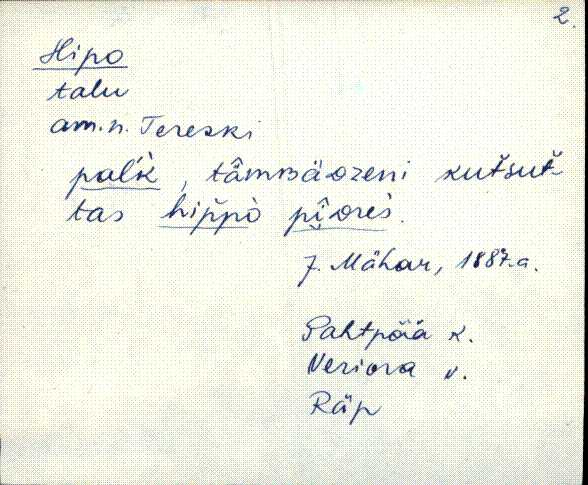 2.
Hipo
talu
am.n. Tereski
pal'k̀, tâmʙäᴅzeni kutsut-
tas hìp̆pò pî̮ᴅres̀.
J. Mähar, 1887.a.
Pahtpää k.
Veriora v.
Räp